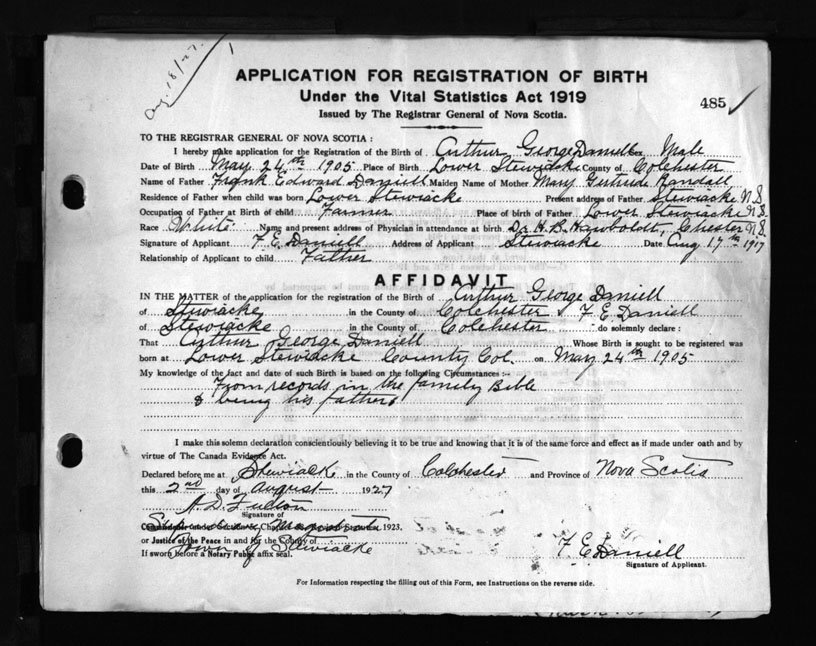 Aug. 18/27.
APPLICATION FOR REGISTRATION OF BIRTH
Under the Vital Statistics Act 1919
485
Issued by The Registrar General of Nova Scotia.
TO THE REGISTRAR GENERAL OF NOVA SCOTIA :
I hereby make application for the Registration of the Birth of Arthur George Daniell Sex Male
Date of Birth May 24th 1905 Place of Birth Lower Stewiacke County of Colchester
Name of Father Frank Edward Daniell Maiden Name of Mother Mary Gertrude Randall
Residence of Father when child was born Lower Stewiacke Present address of Father Stewiacke N.S.
Occupation of Father at Birth of child Farmer Place of birth of Father Lower Stewiacke N.S.
Race White Name and present address of Physician in attendance at birth Dr. H. B. Hawboldt, Chester N.S.
Signature of Applicant F. E. Daniell Address of Applicant Stewiacke Date Aug 17th 1927
Relationship of Applicant to child Father
AFFIDAVIT
IN THE MATTER of the application for the registration of the Birth of Arthur George Daniell
of Stewiacke in the County of Colchester I F E Daniell
of Stewiacke in the County of Colchester do solemnly declare :
That Arthur George Daniell Whose Birth is sought to be registered was
born at Lower Stewiacke County Col. on May 24th 1905
My knowledge of the fact and date of such Birth is based on the following Circumstances :-
From records in the family Bible
& being his father
I make this solemn declaration conscientiously believing it to be true and knowing that it is of the same force and effect as if made under oath and by
virtue of The Canada Evidence Act.
Declared before me at Stewiacke in the County of Colchester and Province of Nova Scotia
this 2nd day of August 1927
A. D. Fulton
Signature of
Stipendiary Magistrate 1923.
or Justice of the Peace in and for the County of
Town of Stewiacke
If sworn before a Notary Public affix seal.
F E Daniell
Signature of Applicant.
For Information respecting the filling out of this Form, see Instructions on the reverse side.